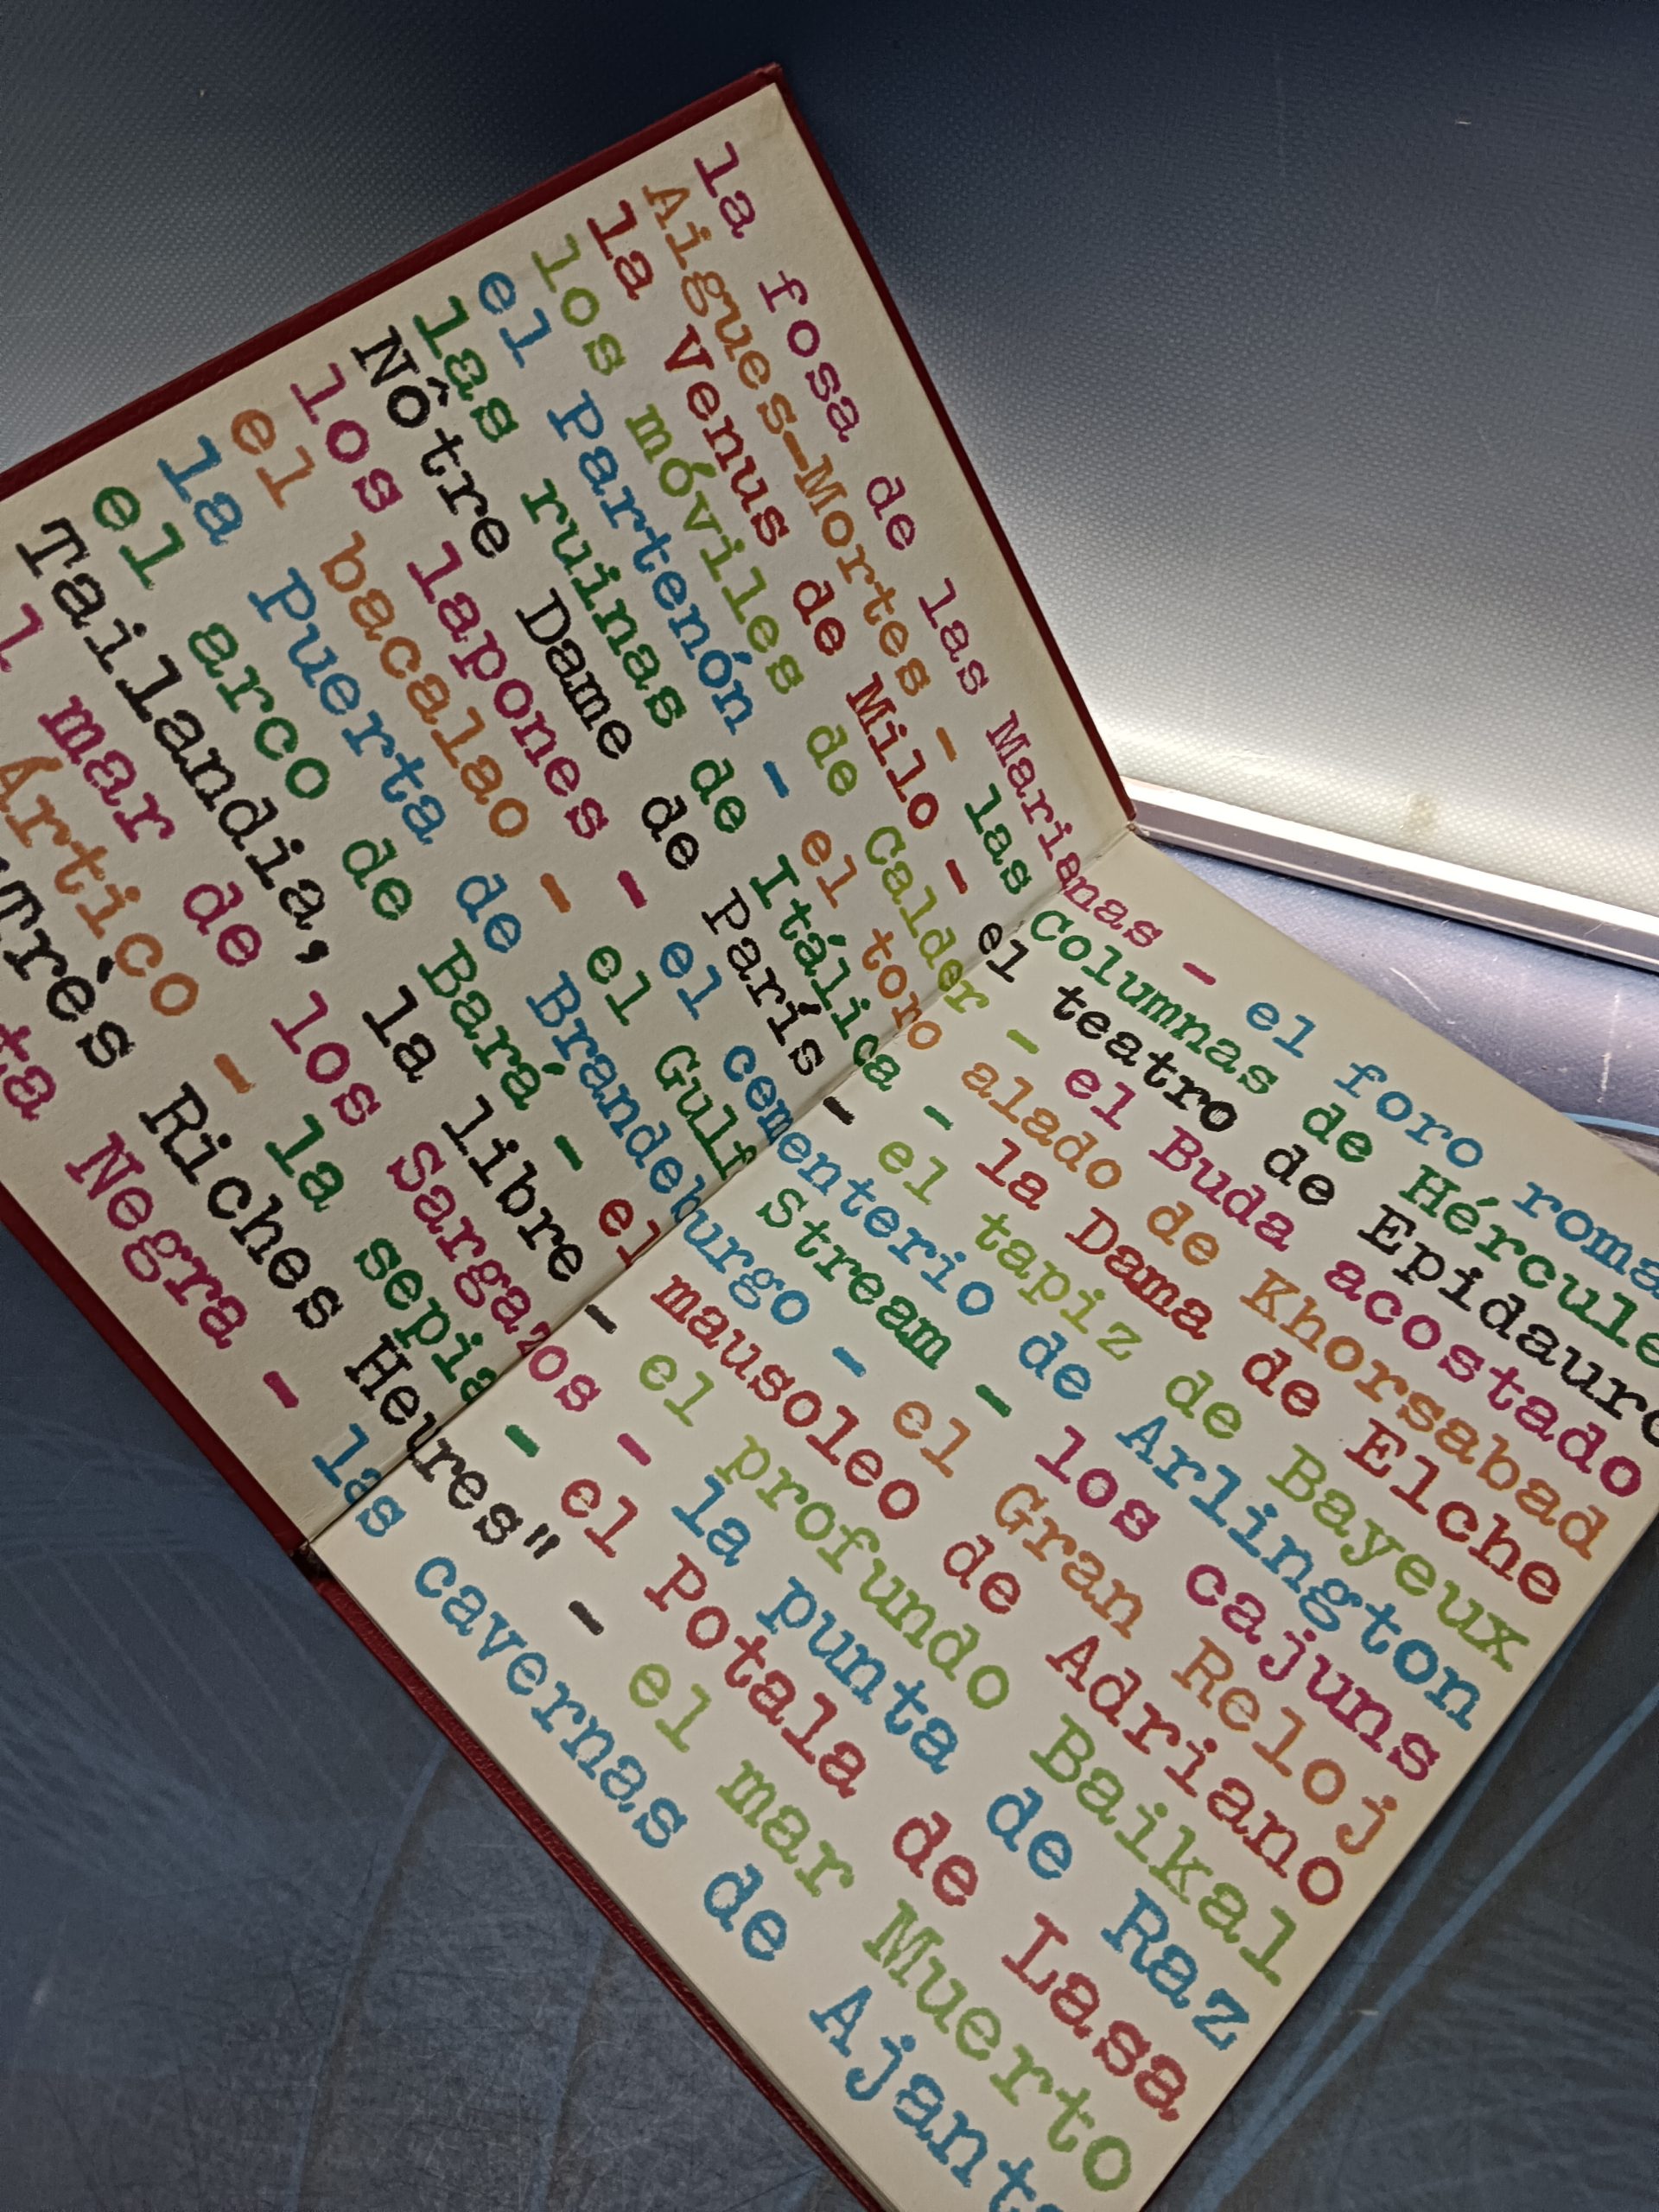 la fosa de las Marianas - el foro roma
Aigues-Mortes - las Columnas de Hércule
la Venus de Milo - el teatro de Epidauro
los móviles de Calder - el Buda acostado
el Partenón - el toro alado de Khorsabad
las ruinas de Itálica - la Dama de Elche
Nôtre Dame de París - el tapiz de Bayeux
los lapones - el cementerio de Arlington
el bacalao - el Gulf Stream - los cajuns
la Puerta de Brandeburgo - el Gran Reloj
el arco de Bará - el mausoleo de Adriano
Tailandia, la libre - el profundo Baikal
l mar de los sargazos - la punta de Raz
Ártico - la sepia - el Potala de Lasa
Très Riches Heures" - el mar Muerto
ta Negra - las cavernas de Ajanta